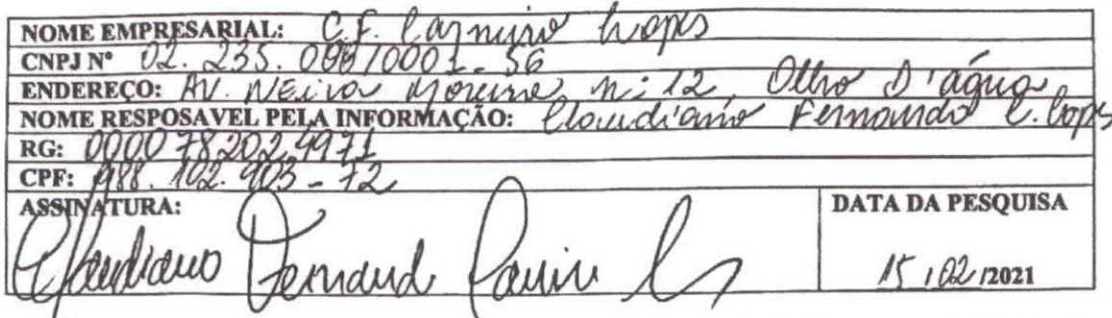 NOME EMPRESARIAL: C.F. Carneiro Lopes
CNPJ Nº 02.235.099/0001-56
ENDEREÇO: AV. Neiva Moreira, n: 12, Olho D'água
NOME RESPOSAVEL PELA INFORMAÇÃO: Claudiano Fernando C. Lopes
RG: 000078202 4971
CPF: 988.102.903-72
ASSINATURA: DATA DA PESQUISA
Claudiano Fernand
15/02/2021